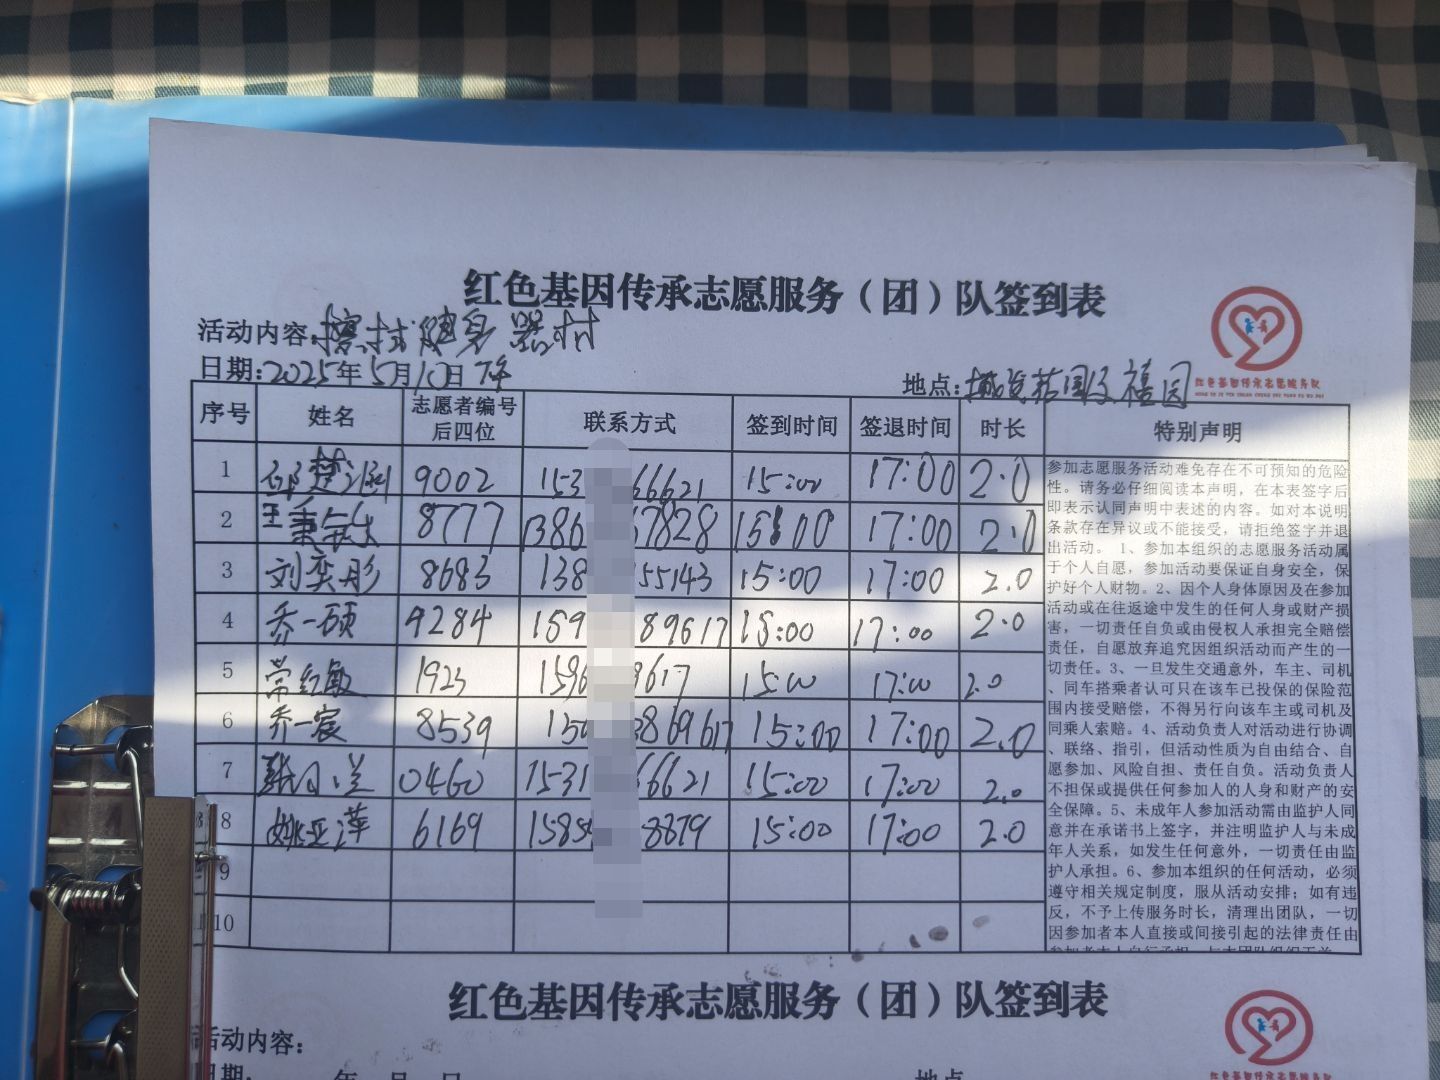 红色基因传承志愿服务（团）队签到表
活动内容:擦拭健身器材
日期:2025年5月10日 下午
地点: 福园
红色基因传承志愿服务队
序号 姓名 志愿者编号后四位 联系方式 签到时间 签退时间 时长 特别声明
1 9002 153 66621 15:00 17:00 2.0
2 王秉 8777 1386 7828 15:00 17:00 2.0
3 刘奕彤 8683 138 55143 15:00 17:00 2.0
4 乔一硕 9284 159 89617 15:00 17:00 2.0
5 常红敏 1923 1596 617 15:00 17:00 2.0
6 乔一宸 8539 150 869617 15:00 17:00 2.0
7 0460 1531 6621 15:00 17:00 2.0
8 姚亚萍 6169 1585 8879 15:00 17:00 2.0
9
10
参加志愿服务活动难免存在不可预知的危险
性。请务必仔细阅读本声明，在本表签字后
即表示认同声明中表述的内容。如对本说明
条款存在异议或不能接受，请拒绝签字并退
出活动。 1、参加本组织的志愿服务活动属
于个人自愿，参加活动要保证自身安全，保
护好个人财物。2、因个人身体原因及在参加
活动或在往返途中发生的任何人身或财产损
害，一切责任自负或由侵权人承担完全赔偿
责任，自愿放弃追究因组织活动而产生的一
切责任。3、一旦发生交通意外，车主、司机
、同车搭乘者认可只在该车已投保的保险范
围内接受赔偿，不得另行向该车主或司机及
同乘人索赔。4、活动负责人对活动进行协调
、联络、指引，但活动性质为自由结合、自
愿参加、风险自担、责任自负。活动负责人
不担保或提供任何参加人的人身和财产的安
全保障。5、未成年人参加活动需由监护人同
意并在承诺书上签字，并注明监护人与未成
年人关系，如发生任何意外，一切责任由监
护人承担。6、参加本组织的任何活动，必须
遵守相关规定制度，服从活动安排；如有违
反，不予上传服务时长，清理出团队，一切
因参加者本人直接或间接引起的法律责任由
红色基因传承志愿服务（团）队签到表
活动内容：
日期: 年 月 日
地点
红色基因传承志愿服务队